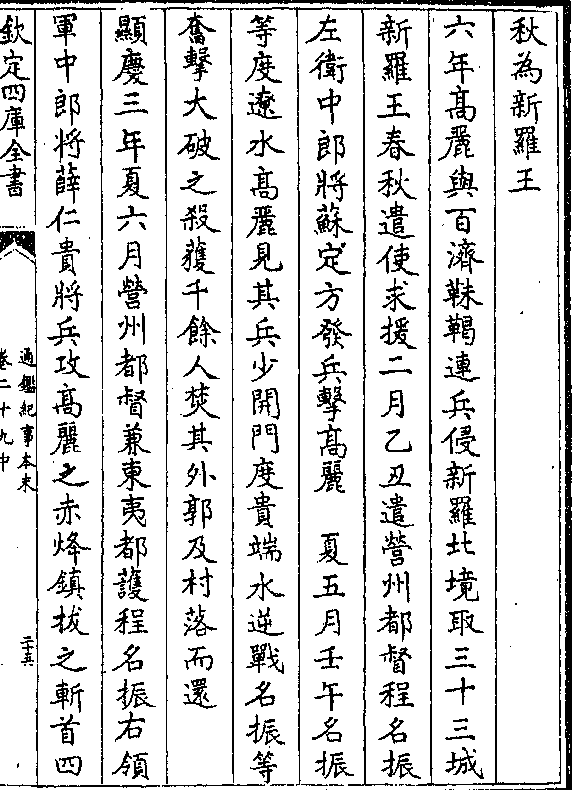 秋為新羅王
六年高麗與百濟靺鞨連兵侵新羅北境取三十三城
新羅王春秋遣使求援二月乙丑遣營州都督程名振
左衛中郎將蘇定方發兵擊高麗　夏五月壬午名振
等度遼水高麗見其兵少開門度貴端水逆戰名振等
奮擊大破之殺獲千餘人焚其外郭及村落而還
顯慶三年夏六月營州都督兼東夷都護程名振右領
軍中郎將薛仁貴將兵攻高麗之赤烽鎮拔之斬首四
欽定四庫全書
通鑑紀事本末
卷二十九中
二十五